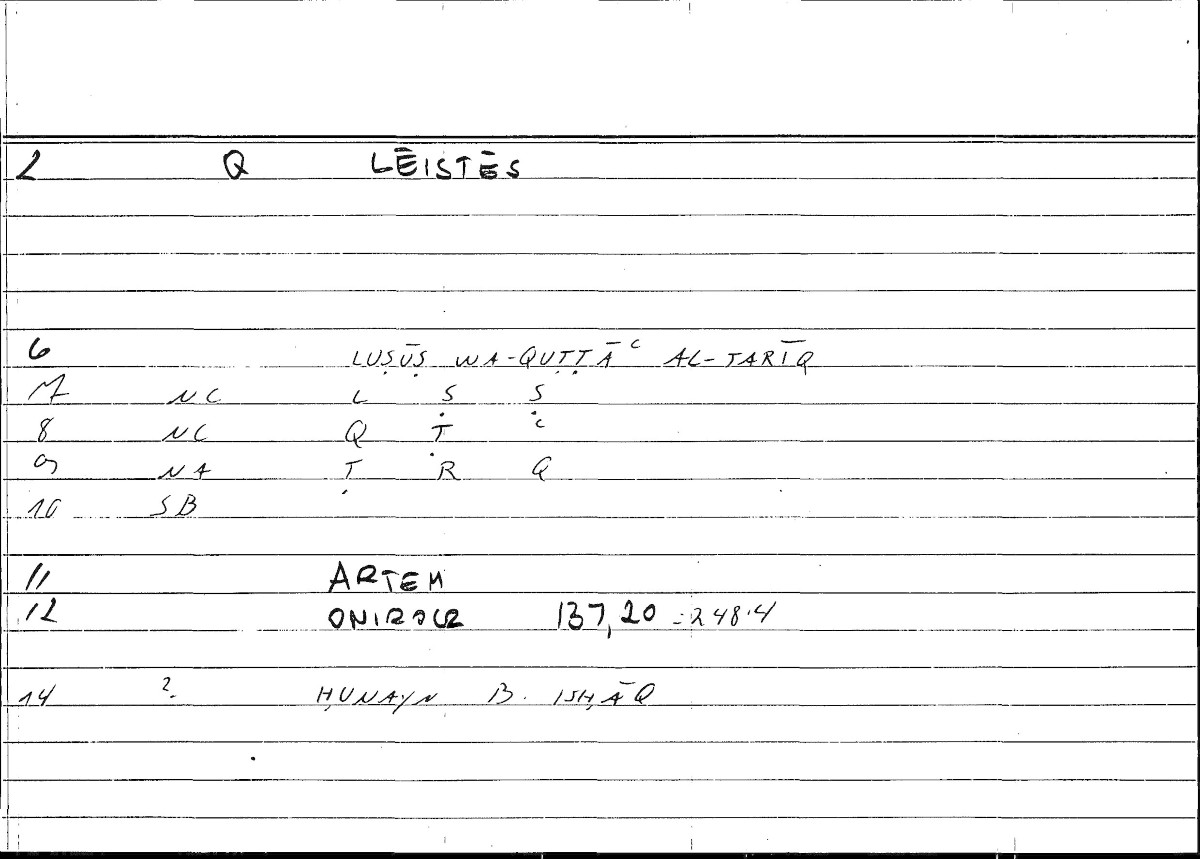 2 Q LĒISTĒS
6 LUṢŪṢ WA-QUṬṬĀʿ AL-ṬARĪQ
7 NC L Ṣ Ṣ
8 NC Q Ṭ ʿ
9 NA Ṭ R Q
10 SB
11 ARTEM
12 ONIROCR 137,20 = 248.4
14 ? ḤUNAYN B. ISḤĀQ